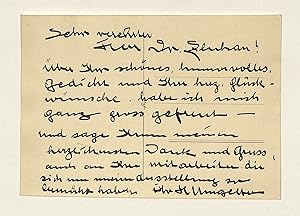 Sehr verehrter
Herr Dr.
Über Ihr schönes, humorvolles
gedicht und Ihre herz. Glück-
wünsche habe ich mich
ganz gross gefreut —
und sage Ihnen meinen
herzlichsten Dank und Gruss,
auch an Ihre Mitarbeiter die
sich um meine Ausstellung so
bemüht haben Ihr